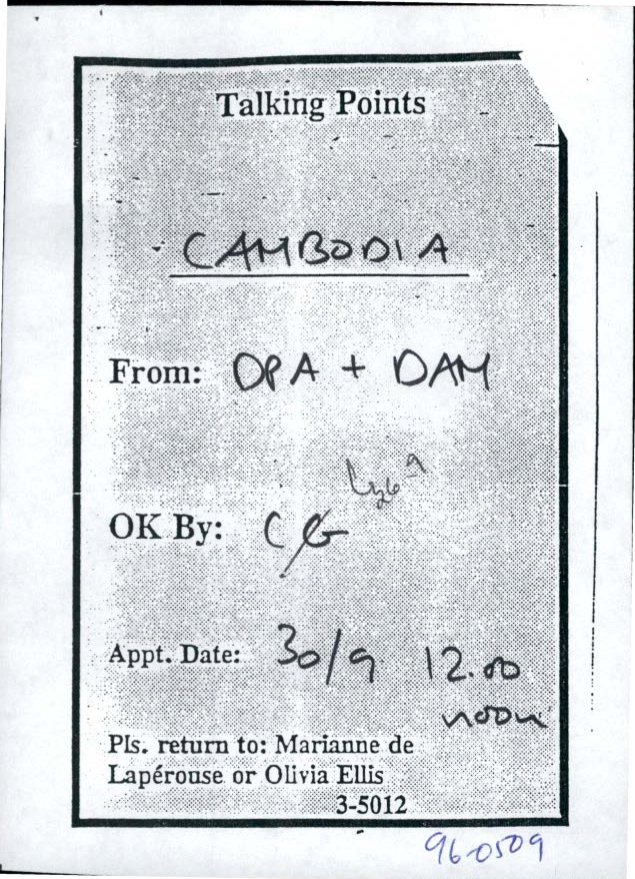 Talking Points
CAMBODIA
From: DPA + DAM
OK By: CG
Appt. Date: 30/9 12.00
noon
Pls. return to: Marianne de
Lapérouse or Olivia Ellis
3-5012
96-0509